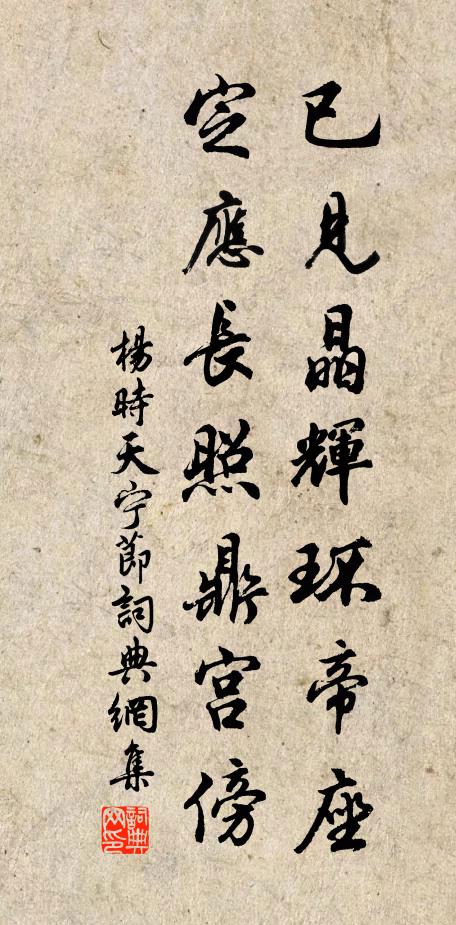 已見晶輝环帝座
定應長照鼎宮傍
楊時天宁節詞典網集
詞典网印